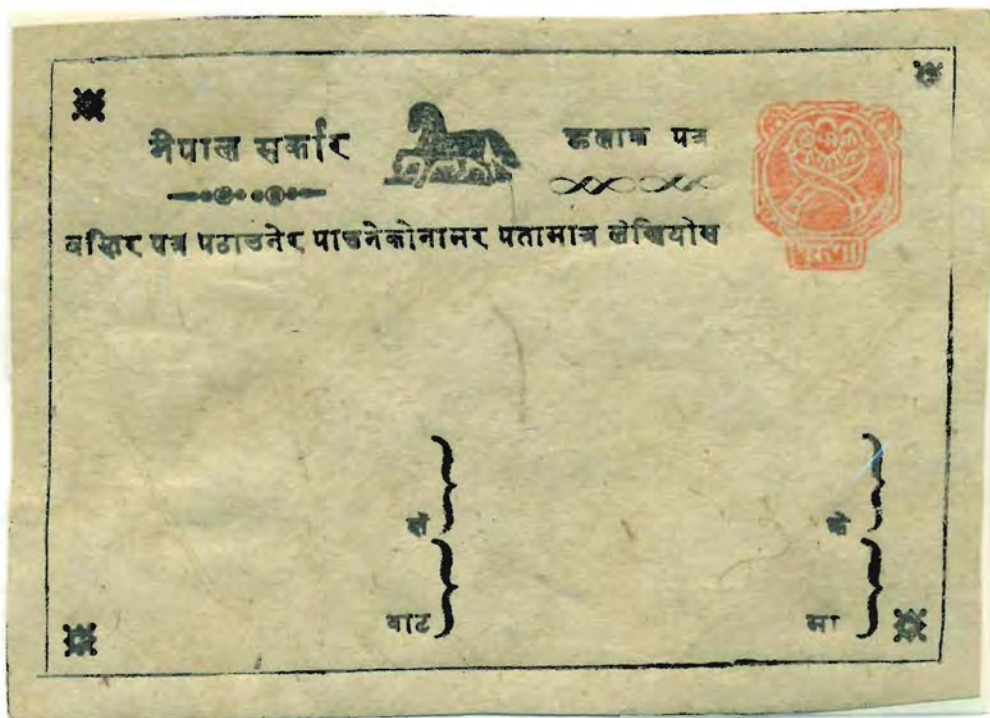 नेपाल सर्कार
पत्र
पत्र पठाउनेर पाउनेकोनामर पतामात्र लेखियोस
बाट
मा